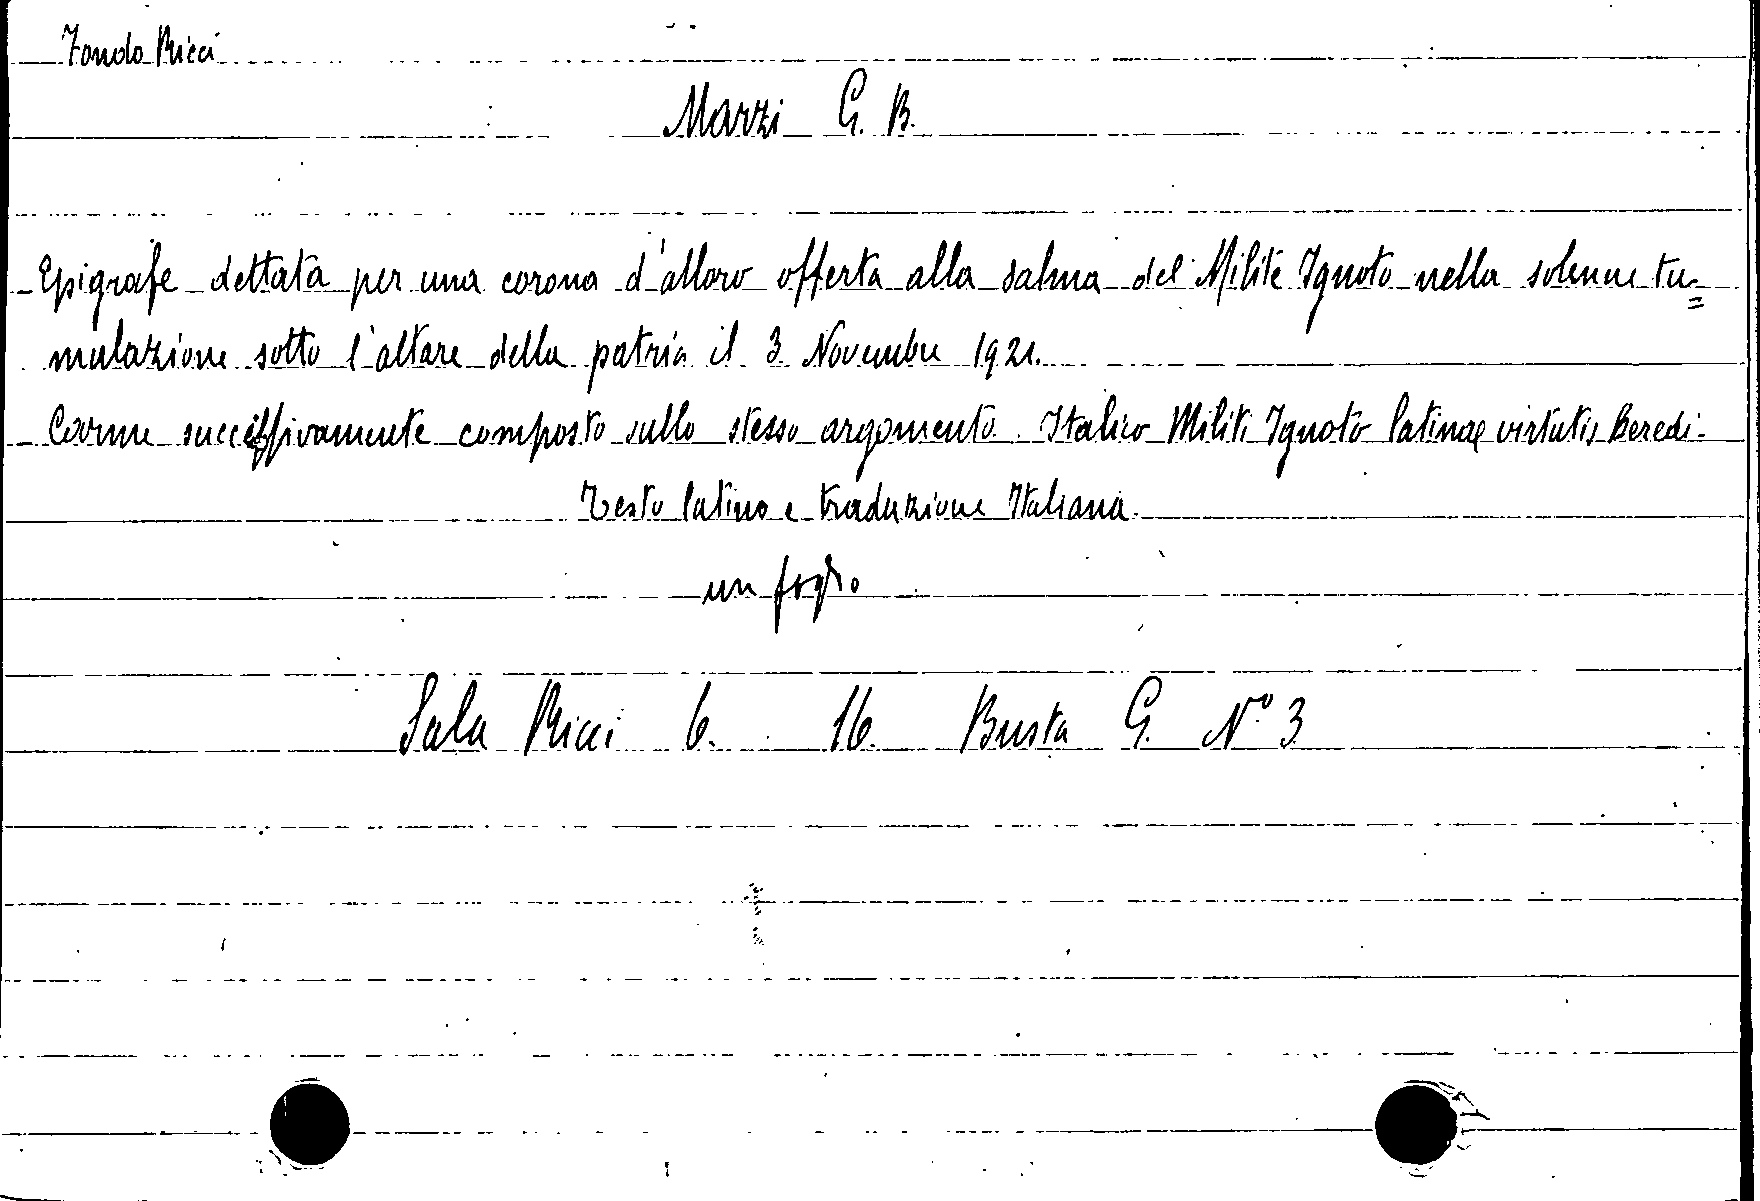 Fondo Ricci
Marzi G. B.
Epigrafe dettata per una corona d'alloro offerta alla salma del Milite Ignoto nella solenne tu=
mulazione sotto l'altare della patria il 3 Novembre 1921.
Carme successivamente composto sullo stesso argomento. Italico Militi Ignoto latinae virtutis heredi.
Testo latino e traduzione Italiana.
un foglio
Sala Ricci 6. 16. Busta G. N° 3